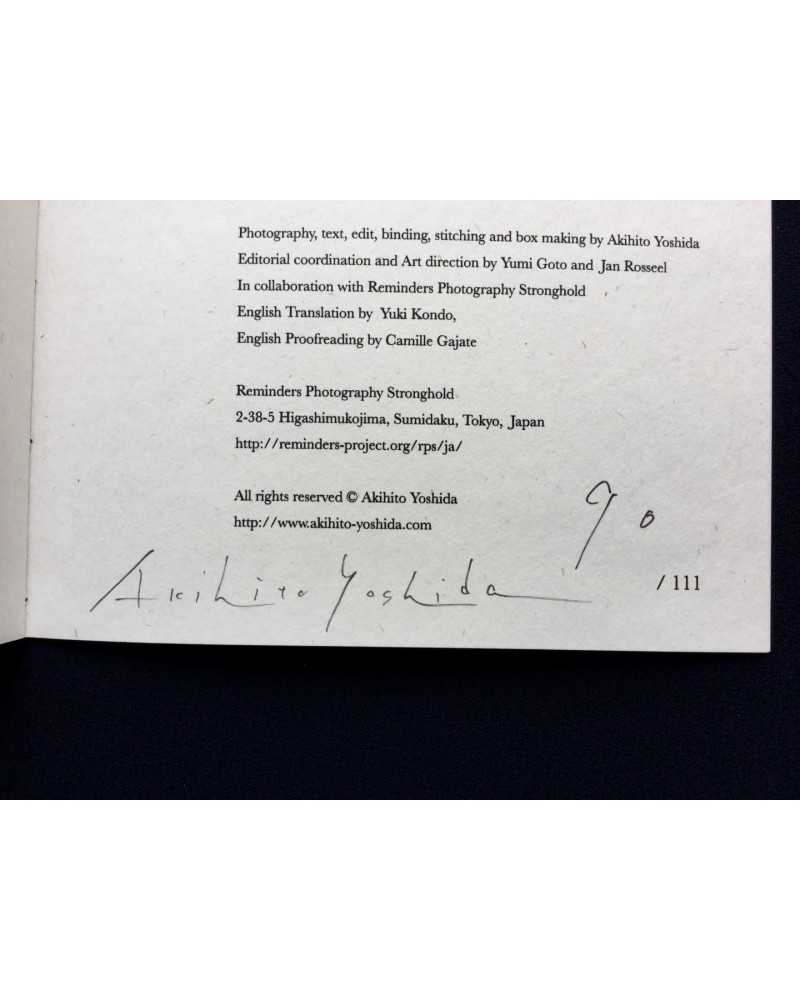 Photography, text, edit, binding, stitching and box making by Akihito Yoshida
Editorial coordination and Art direction by Yumi Goto and Jan Rosseel
In collaboration with Reminders Photography Stronghold
English Translation by Yuki Kondo,
English Proofreading by Camille Gajate
Reminders Photography Stronghold
2-38-5 Higashimukojima, Sumidaku, Tokyo, Japan
http://reminders-project.org/rps/ja/
All rights reserved © Akihito Yoshida
http://www.akihito-yoshida.com
90
Akihito Yoshida
/ 111